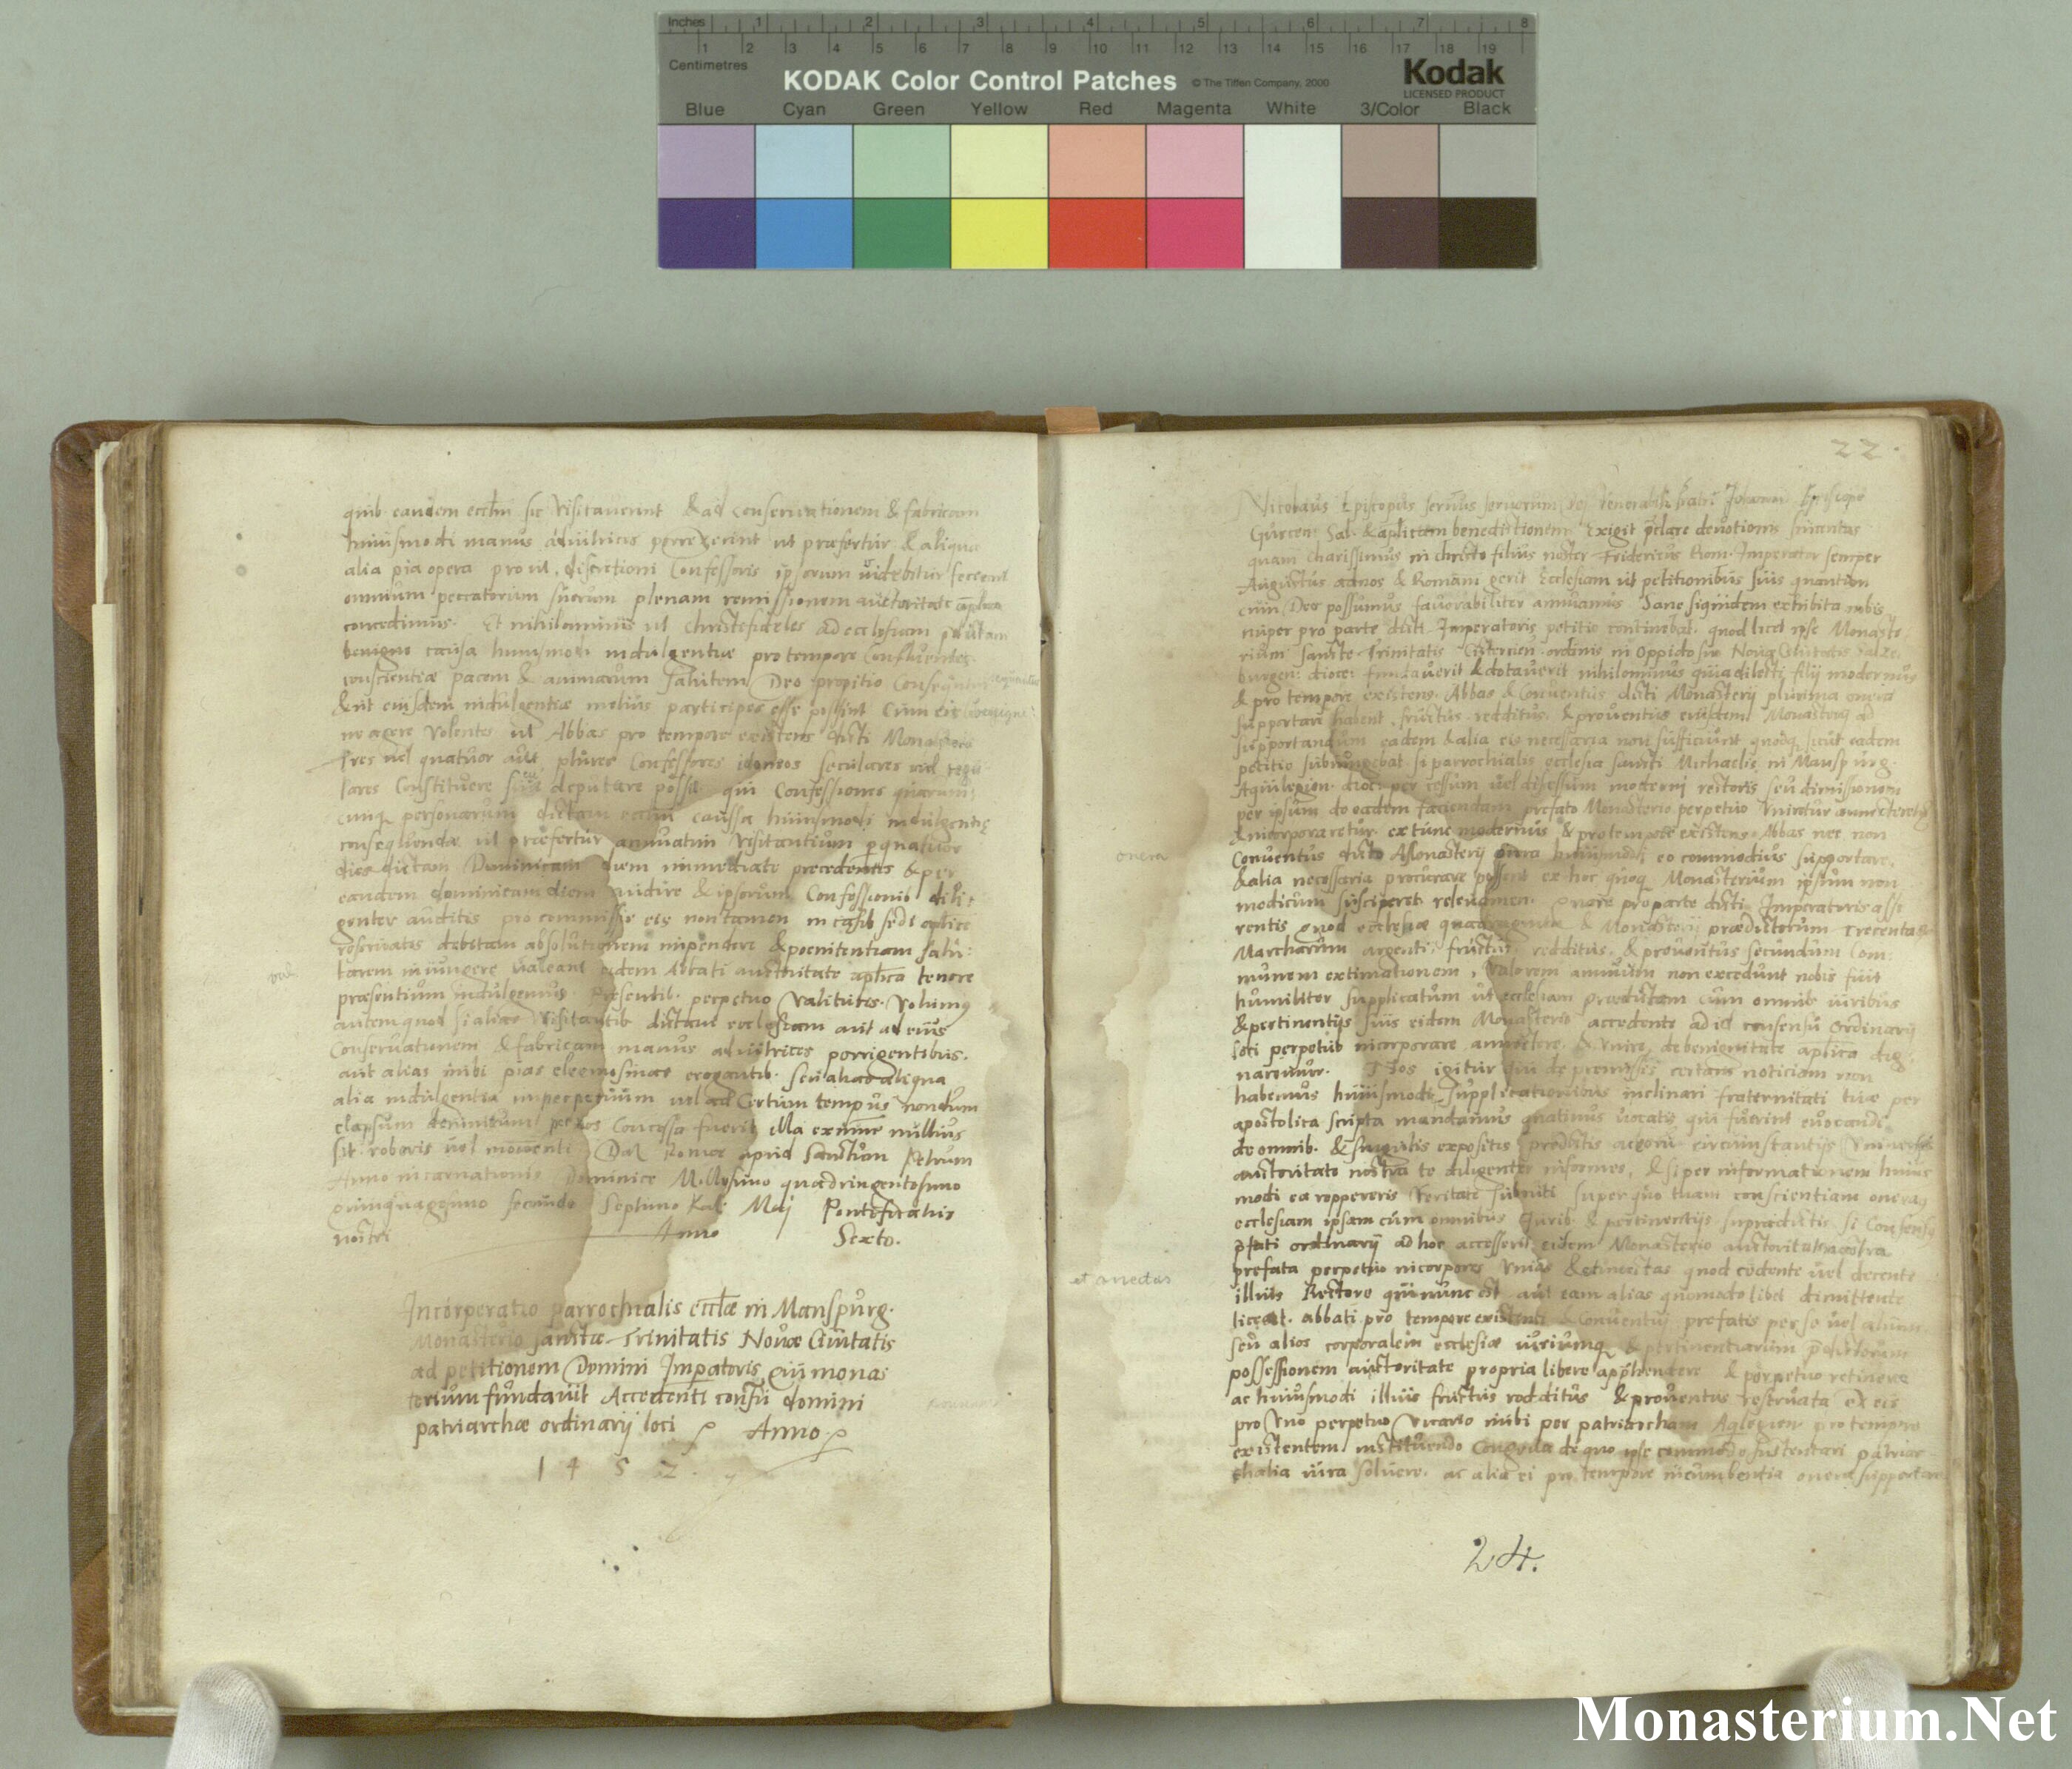 Inches 1 2 3 4 5 6 7 8
1 2 3 4 5 6 7 8 9 10 11 12 13 14 15 16 17 18 19
Centimetres
KODAK Color Control Patches © The Tiffen Company, 2000 Kodak
LICENSED PRODUCT
Blue Cyan Green Yellow Red Magenta White 3/Color Black
quib. eandem ecclm sic visitaverint & ad conservationem & fabricam
huiusmodi manus adiutrices porrexerint ut præfertur & aliqua
alia pia opera prout discretioni Confessoris ipsorum videbitur fecerint
omnium peccatorum suorum plenam remissionem auctoritate aplica
concedimus. Et nihilominus ut Christifideles ad ecclesiam
benigne causa huiusmodi indulgentiæ pro tempore Confluentes
conscientiæ pacem & animarum salutem Deo propitio
& ut eiusdem indulgentiæ melius participes esse possint Cum eis benigne
agere volentes ut Abbas pro tempore existens dicti Monasterij
tres vel quatuor aut plures Confessores idoneos seculares vel regu
lares Constituere deputare possit qui Confessiones quarum
cunq personarum dictam ecclm caussa huiusmodi indulgentię
consequendæ ut præfertur annuatim visitantium p quatuor
dies dictam Dominicam diem immediate precedentes & per
eandem dominicam diem audire & ipsorum Confessionib dili:
genter auditis pro commissis eis non tamen in casib sedi aplice
reservatis debitam absolutionem impendere & poenitentiam salu:
tarem iniungere valeant eidem Abbati auctoritate aplica tenore
præsentium indulgemus. Presentib. perpetuo valituris. Volumus
autem quod si alias visitantib dictam ecclesiam aut ad eius
Conservationem & fabricam manus adiutrices porrigentibus.
aut alias inibi pias eleemosinas erogantib. seu alias aliqua
alia indulgentia imperpetuum vel ad Certum tempus nondum
elapsum per nos Concessa fuerit illa exnunc nullius
sit roboris vel momenti. Dat Romæ apud Sanctum Petrum
Anno incarnationis Dominice Millesimo quadringentesimo
quinquagesimo secundo Septimo Kal. Maij Pontificatus
nostri Anno Sexto.
Incorporatio parrochialis ecclæ in Manspurg.
Monasterio sanctæ Trinitatis Novæ Civitatis
ad petitionem Domini Imperatoris, qui monas
terium fundavit Accedenti consu domini
patriarchæ ordinarij loci Anno
1 4 5 2.
22.
Nicolaus Episcopus servus servorum Dei Venerabili fratri Johanni Episcopo
Gurcen: Sal. & aplicam benedictionem. Exigit devotionis sinceritas
quam Charissimus in Christo filius noster Fridericus Rom. Imperator semper
Augustus ad nos & Romam gerit Ecclesiam ut petitionibus suis quantum
cum Deo possumus favorabiliter annuamus. Sane siquidem exhibita nobis
nuper pro parte dicti Imperatoris petitio continebat. quod licet ipse Monaste
rium sancte Trinitatis Cistercien. ordinis in Oppido sue Noue Civitatis Salze
burgen: dioc: fundaverit & dotaverit nihilominus quia dilecti filij modernus
& pro tempore existens. Abbas & Conventus dicti Monasterij plurima onera
supportare habent, fructus redditus & proventus eiusdem Monasterij ad
supportandum eadem & alia eis necessaria non sufficiunt quodq sicut eadem
petitio subiungebat si parrochialis ecclesia sancti Michaelis in Mansp urg.
Aquilegien. dioc. per cessum vel discessum moderni rectoris seu dimissionem
per ipsum de eadem faciendam prefato Monasterio perpetuo uniretur
& incorporaretur ex tunc modernus & pro tempore existens Abbas nec non
onera
Conventus dicti Monasterij onera huiusmodi eo commodius supportare.
& alia necessaria procurare possent ex hoc quoq Monasterium ipsum non
modicum susciperet relevamen. Quare pro parte dicti Imperatoris asse
rentis quod ecclesiæ quadraginta & Monasterij prædictorum trecentas
Marcharum argenti, fructus, redditus, & proventus secundum Com:
munem extimationem, valorem annuum non excedunt nobis fuit
humiliter supplicatum ut ecclesiam prædictam cum omnib iuribus
& pertinentijs suis eidem Monasterio accedente ad id consensu Ordinarij
loci perpetuo incorporare annectere. & unire, de benignitate aplica dig:
naremur. Nos igitur qui de premissis certam noticiam non
habemus huiusmodi supplicationibus inclinari fraternitati tuæ per
apostolica scripta mandamus quatinus vocatis qui fuerint evocandi.
de omnib. & singulis expositis predictis circumstantijs
auctoritate nostra te diligenter informes, & si per informationem huius
modi ea reppereris veritate subniti super quo tuam conscientiam oneramus
ecclesiam ipsam cum omnibus Iurib. & pertinentijs supradictis si Consensus
pfati ordinarij ad hoc accesserit eidem Monasterio auctoritate nostra
et anectas
prefata perpetuo incorpores unias quod cedente vel decente
illius Rectore qui nunc est aut eam alias quomodolibet dimittente
liceat. abbati pro tempore existenti & Conventui prefatis per se vel alium
seu alios corporalem ecclesiæ iuriumq & pertinentiarum predictorum
possessionem auctoritate propria libere apprehendere & perpetuo retinere
ac huiusmodi illius fructus redditus & proventus reservata ex eis
pro uno perpetuo vicario inibi per patriarcham pro tempore
existentem instituendo Congrua de quo ipse commode sustentari patriar
chalia iura solvere. ac alia ei pro tempore incumbentia onera supportare
24.
Monasterium.Net